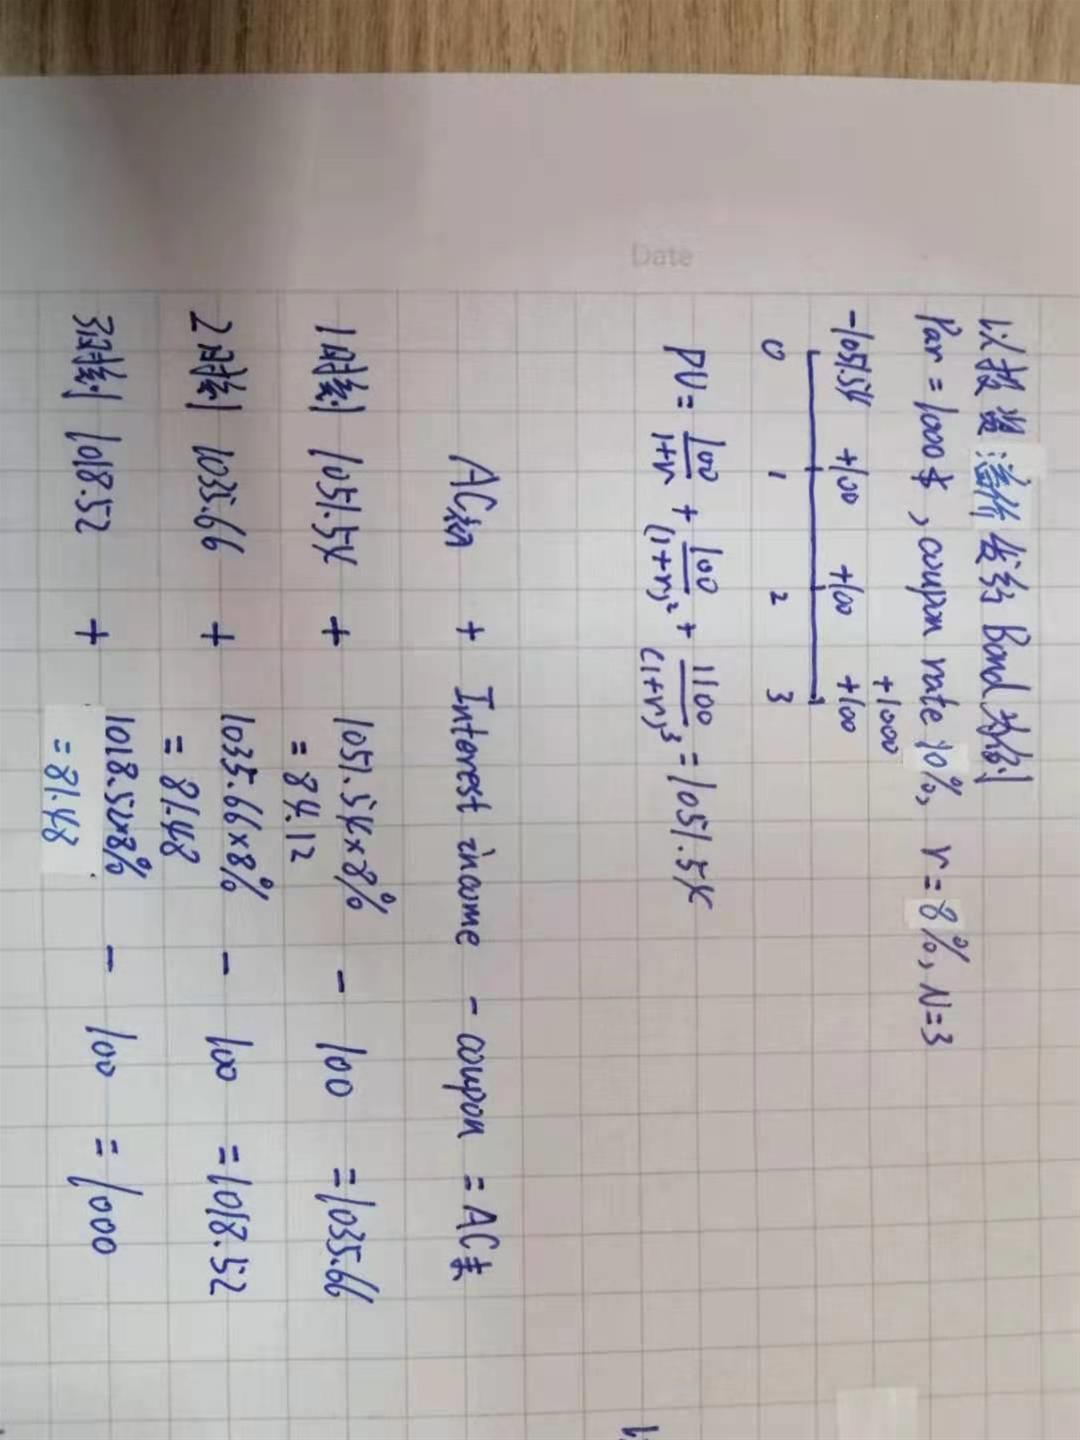 Date
以投资溢价发行Bond为例
Par = 1000$, coupon rate 10%, r = 8%, N=3
+1000
-1051.54 +100 +100 +100
0 1 2 3
PV = 100/1+r + 100/(1+r)² + 1100/(1+r)³ = 1051.54
AC初 + Interest income - coupon = AC末
1时刻 1051.54 + 1051.54×8% - 100 = 1035.66
= 84.12
2时刻 1035.66 + 1035.66×8% - 100 = 1018.52
= 81.48
3时刻 1018.52 + 1018.52×8% - 100 = 1000
= 81.48